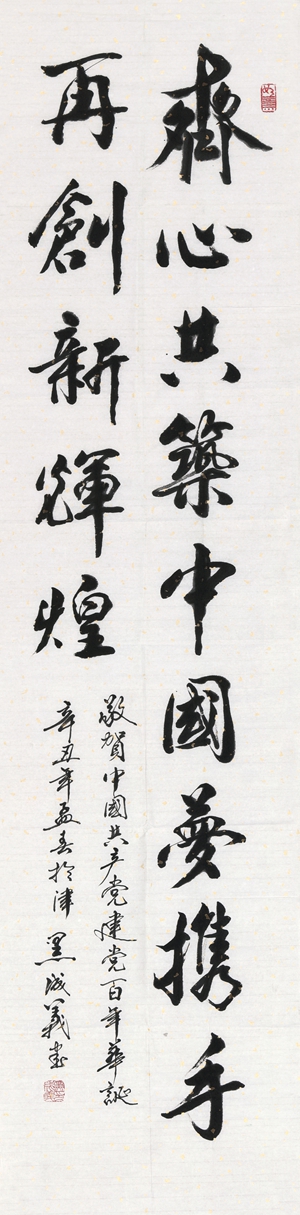 齊心共築中國夢携手
再創新輝煌
敬賀中國共产党建党百年華誕
辛丑年孟春於津 黑成義書